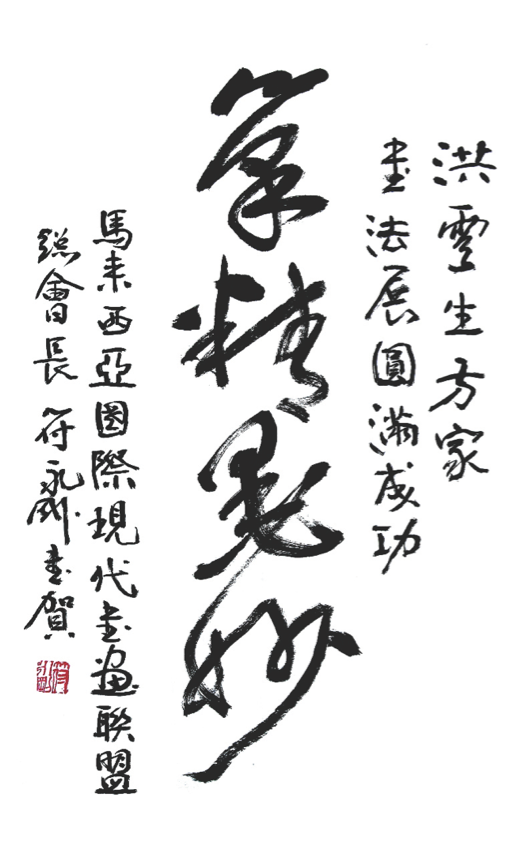 洪雲生方家
書法展圓滿成功
筆精墨妙
馬來西亞國際現代書畫聯盟
總會長 符永剛書賀